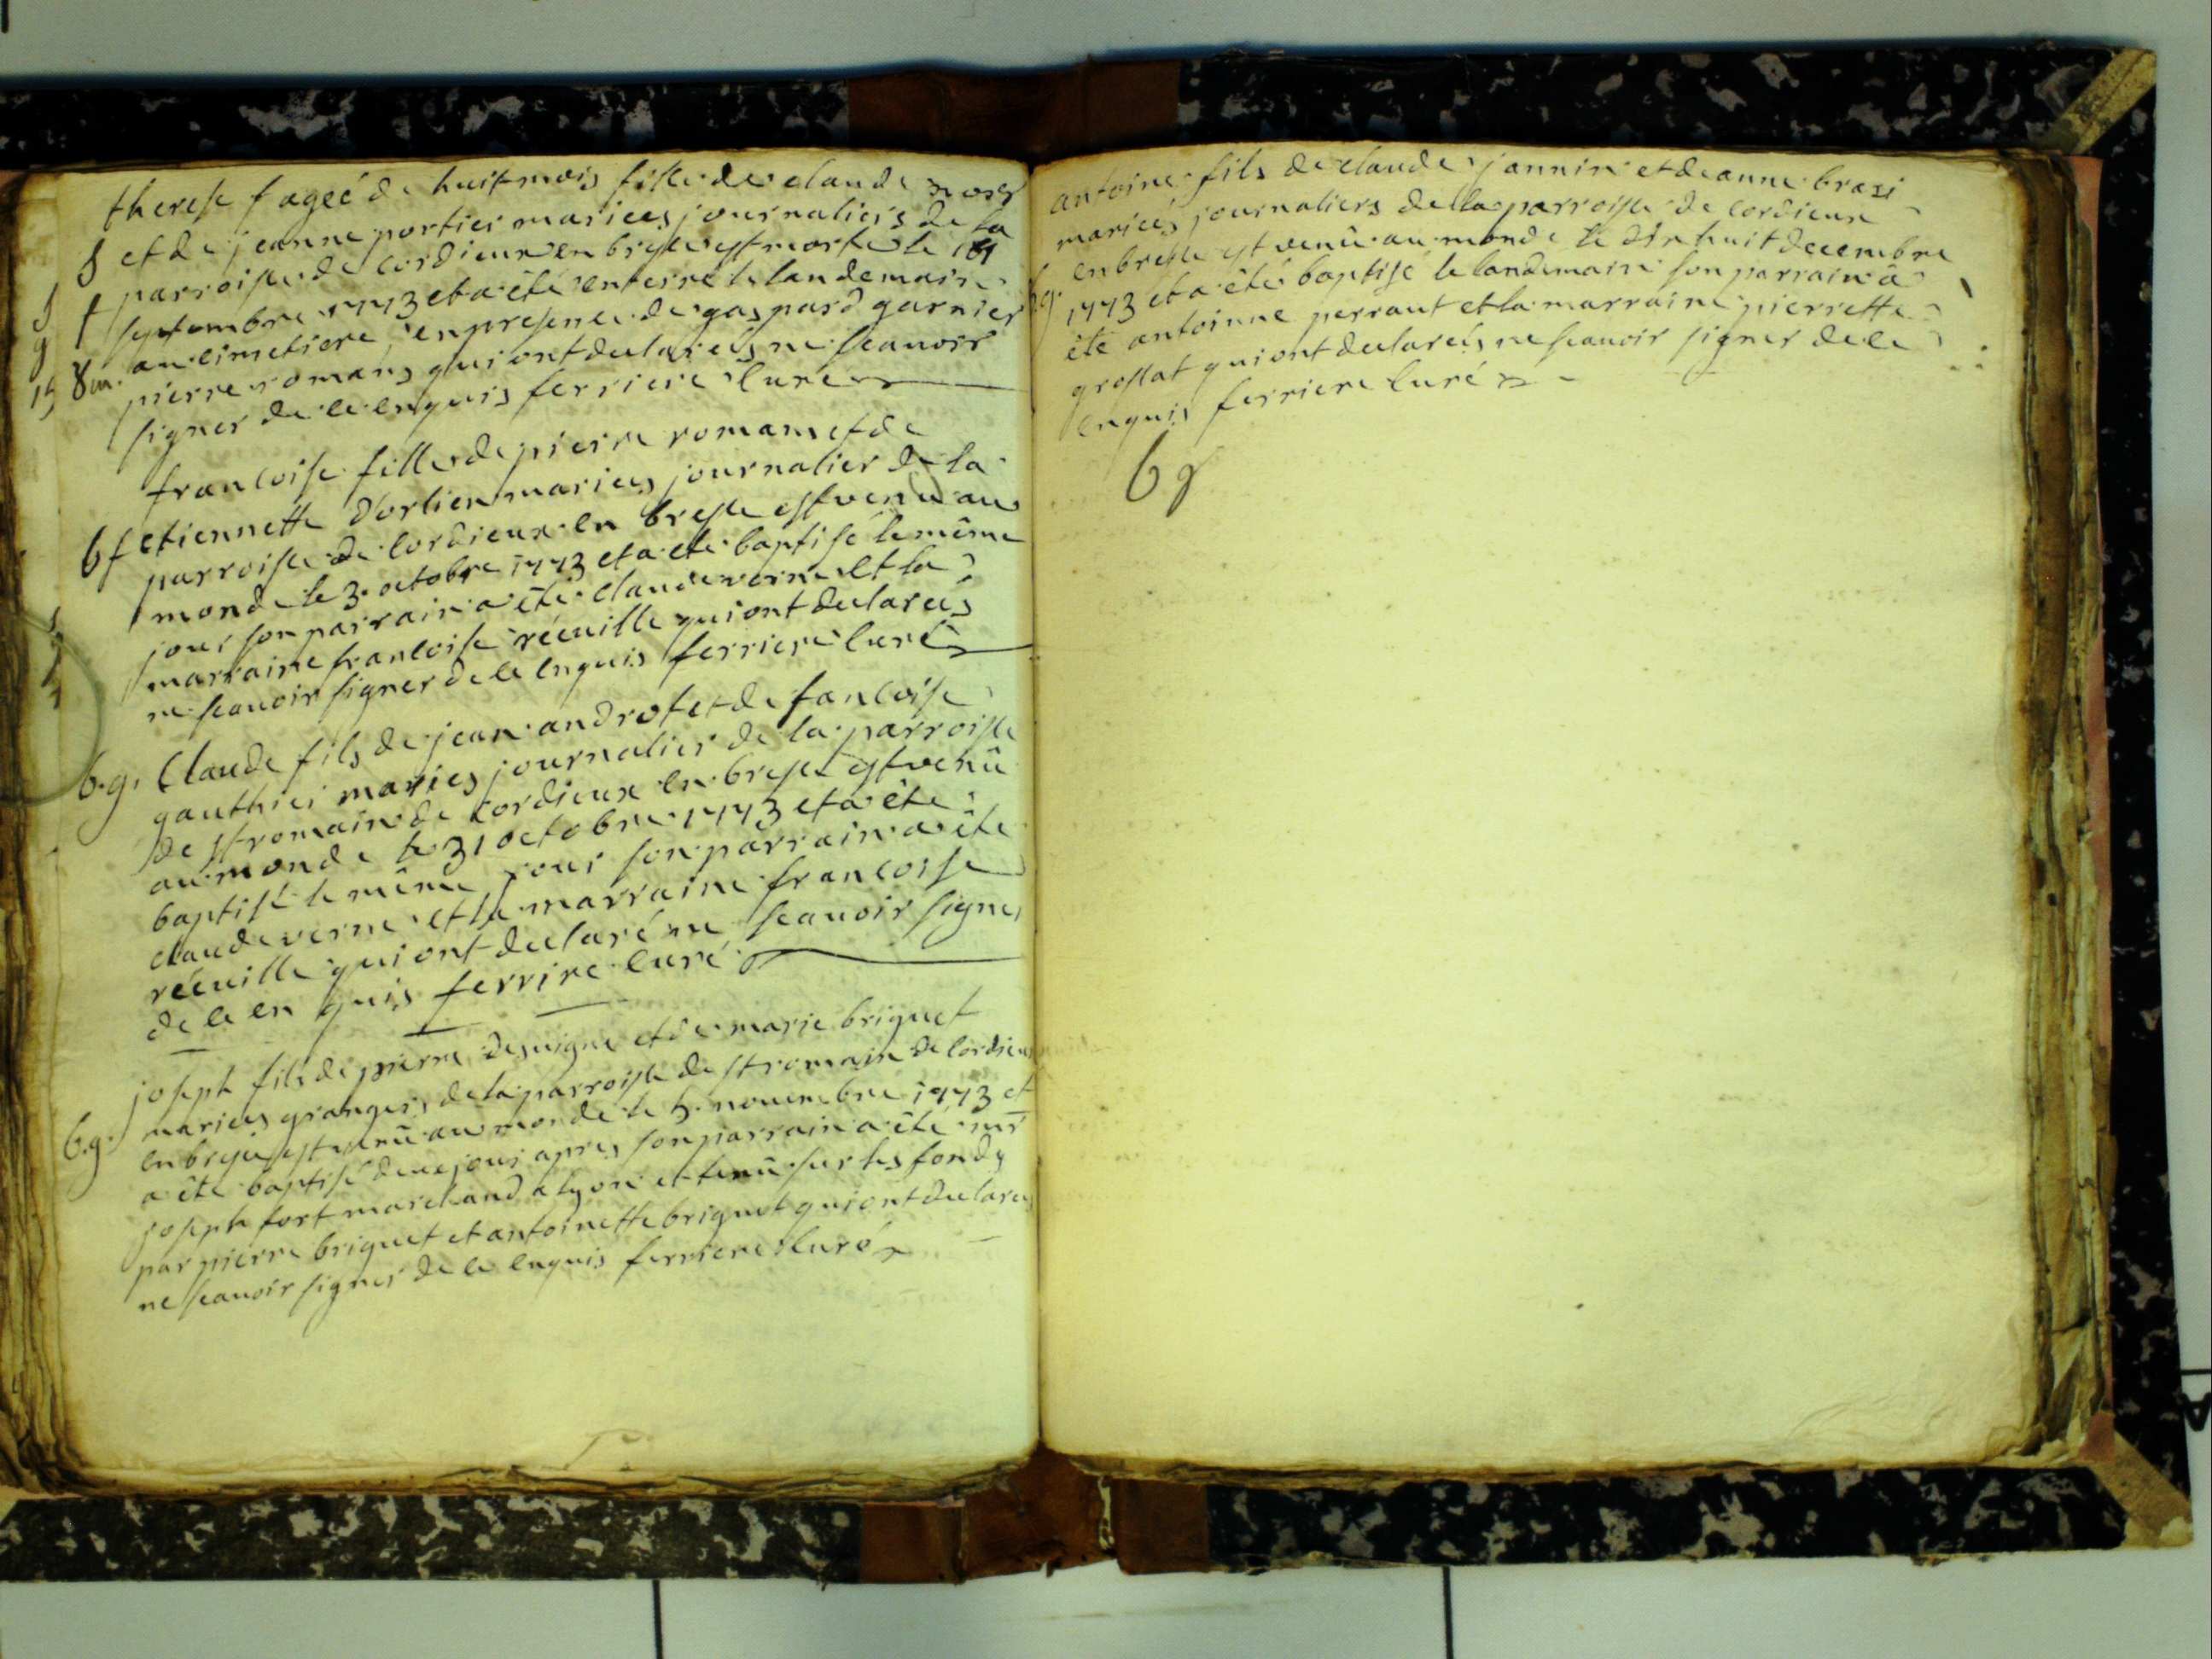 therese f ageé de huit mois fille de claude
S et de jeanne portier mariees journaliers de la
parroisse de cordieux en bresse est morte le
f septembre 1773 et a été enterré le landemain
8 m. au cimetiere, en presence de gaspard garnier
pierre romans qui ont declareés ne scauoir
signer de ce enquis ferriere curé
francoise fille de pierre romans et de
b f etiennette dorlien mariees journalier de la
parroisse de cordieux en bresse est venu au
monde le 3 octobre 1773 et a eté baptisé le même
jour son parrain a été claude verne et la
marraine francoise récuille qui ont declarees
ne scauoir signer de ce enquis ferriere curé
b.g. Claude fils de jean androt et de fancoise
gauthier maries journalier de la parroisse
de st romain de cordieux en bresse est venû
au monde le 31 octobre 1773 et a été
baptisé le même jour son parrain a été
claude verne et la marraine francoise
récuille qui ont declaré ne scauoir signer
de ce en quis ferrire curé
joseph fils de pierre desuigne et de marie briquet
mariees grangers de la parroisse de st romain de cordieux
b.g. en bresse est venû au monde le 5 nouembre 1773 et
a été baptisé deux jour apres son parrain a été mr
joseph fort marchand a lyon et tenû sur les fonds
par pierre briquet et antoinette briquet qui ont declarees
ne scauoir signer de ce enquis ferriere curé
antoine fils de claude jannin et de anne brasi
marieés journaliers de la parroisse de cordieux
en bresse est venû au monde le dix huit decembre
b.g. 1773 et a été baptisé le landemain son parrain a
été antoinne perraut et la marraine pierrette
grossat qui ont declareés ne scauoir signer de ce
enquis ferriere curé
6 g